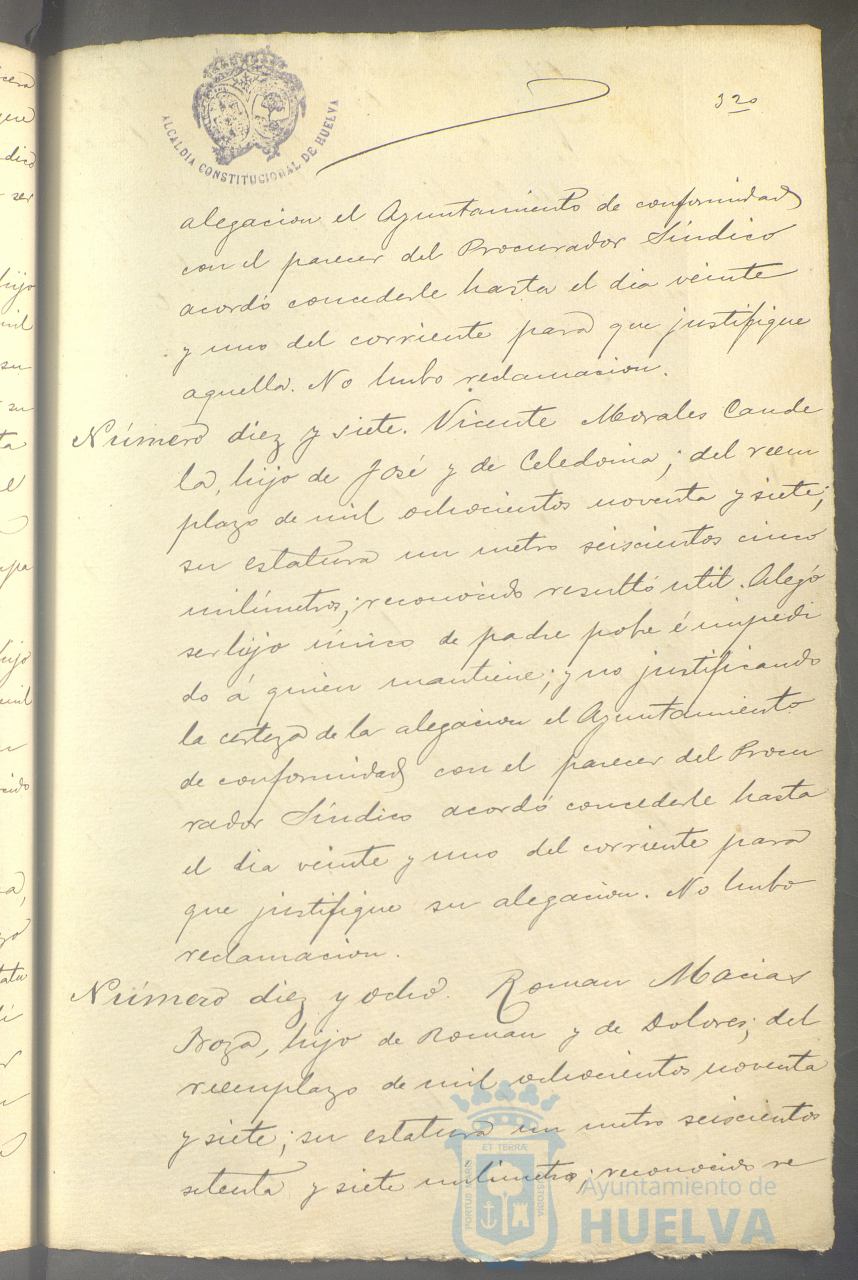 ALCALDIA CONSTITUCIONAL DE HUELVA
320
alegacion el Ayuntamiento de conformidad
con el parecer del Procurador Síndico
acordó concederle hasta el dia veinte
y uno del corriente para que justifique
aquella. No hubo reclamacion.
Número diez y siete. Vicente Morales Cande
la, hijo de José y de Celedonia; del reem
plazo de mil ochocientos noventa y siete;
su estatura un metro seiscientos cinco
milímetros; reconocido resultó util. Alegó
ser hijo único de padre pobre é impedi
do á quien mantiene; y no justificando
la certeza de la alegacion el Ayuntamiento
de conformidad con el parecer del Procu
rador Síndico acordó concederle hasta
el dia veinte y uno del corriente para
que justifique su alegacion. No hubo
reclamacion.
Número diez y ocho. Roman Macias
hijo de Roman y de Dolores; del
reemplazo de mil ochocientos noventa
y siete; su estatura un metro seiscientos
setenta y siete milimetros; reconocido re
PORTUS MARIS ET TERRÆ CUSTODIA
Ayuntamiento de
HUELVA